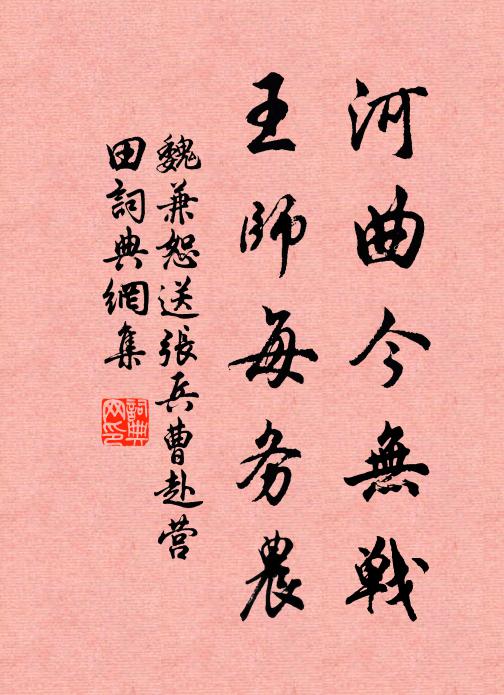 河曲今無戰
王師每务農
魏兼恕送張兵曹赴营
田詞典網集
詞典
网印